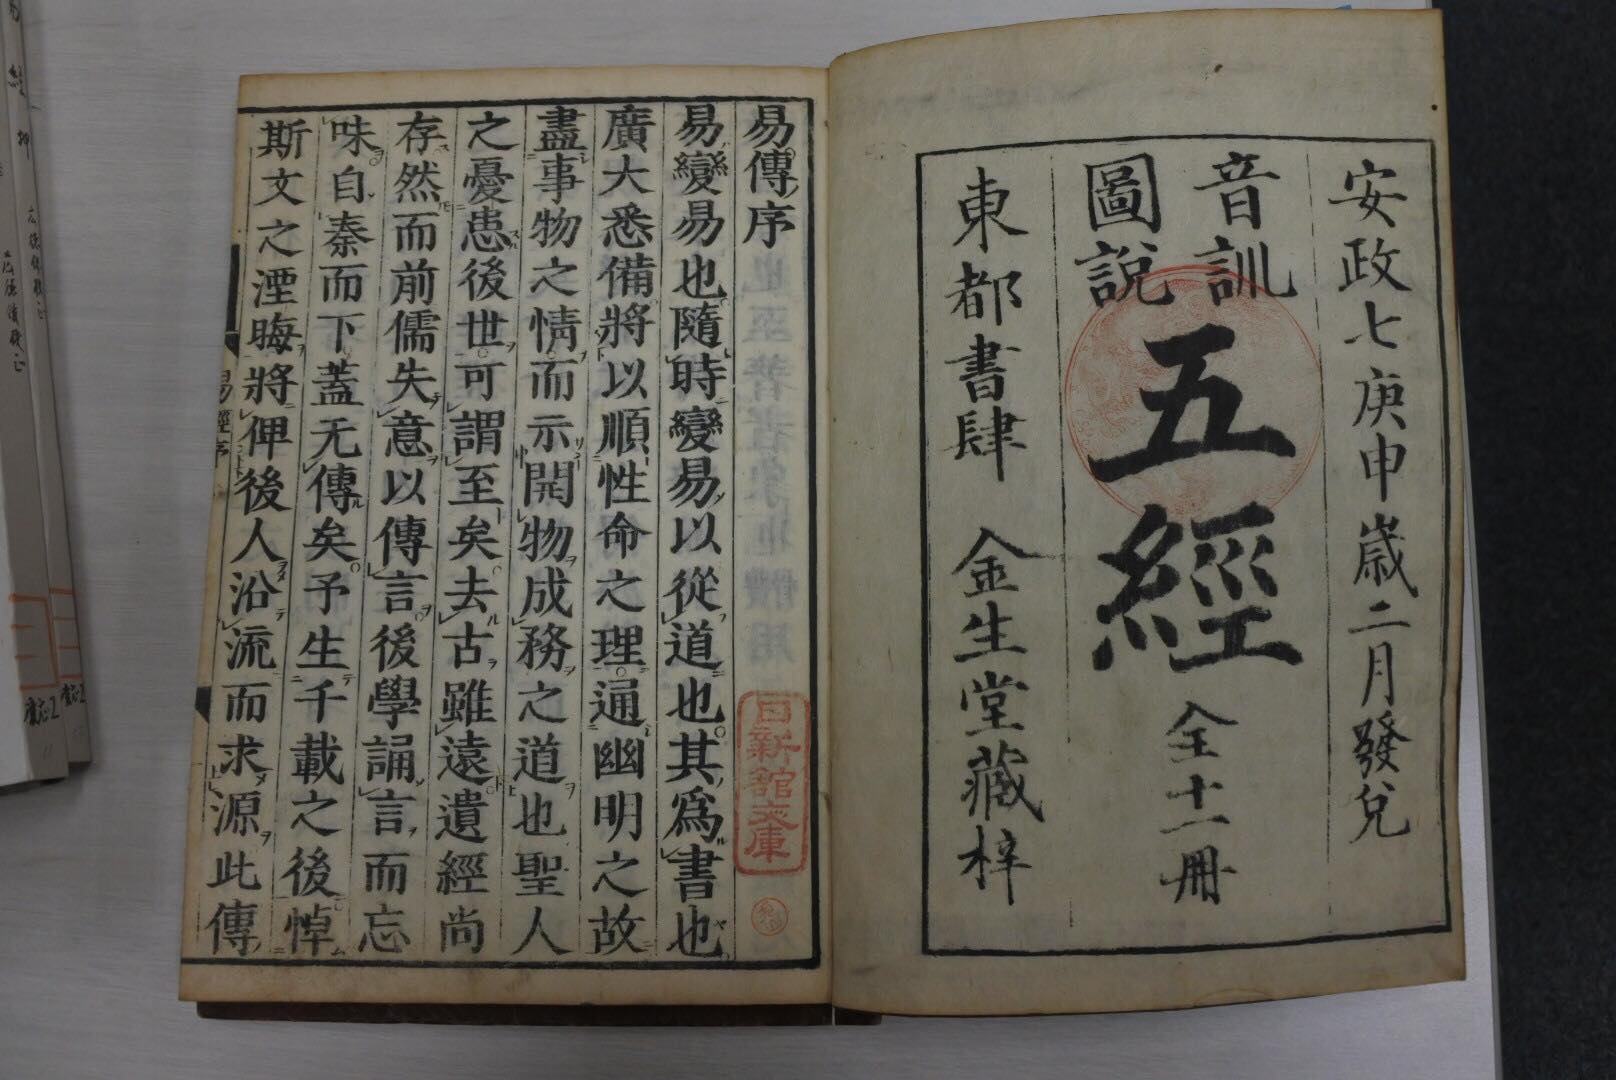 安政七庚申歲二月發兌
音訓
圖說
五經
全十一冊
東都書肆 金生堂藏梓
易傳序
易變易也隨時變易以從道也其爲書也
廣大悉備將以順性命之理通幽明之故
盡事物之情而示開物成務之道也聖人
之憂患後世可謂至矣去古雖遠遺經尚
存然而前儒失意以傳言後學誦言而忘
味自秦而下蓋无傳矣予生千載之後悼
斯文之湮晦將俾後人沿流而求源此傳
日新館文庫
易經序